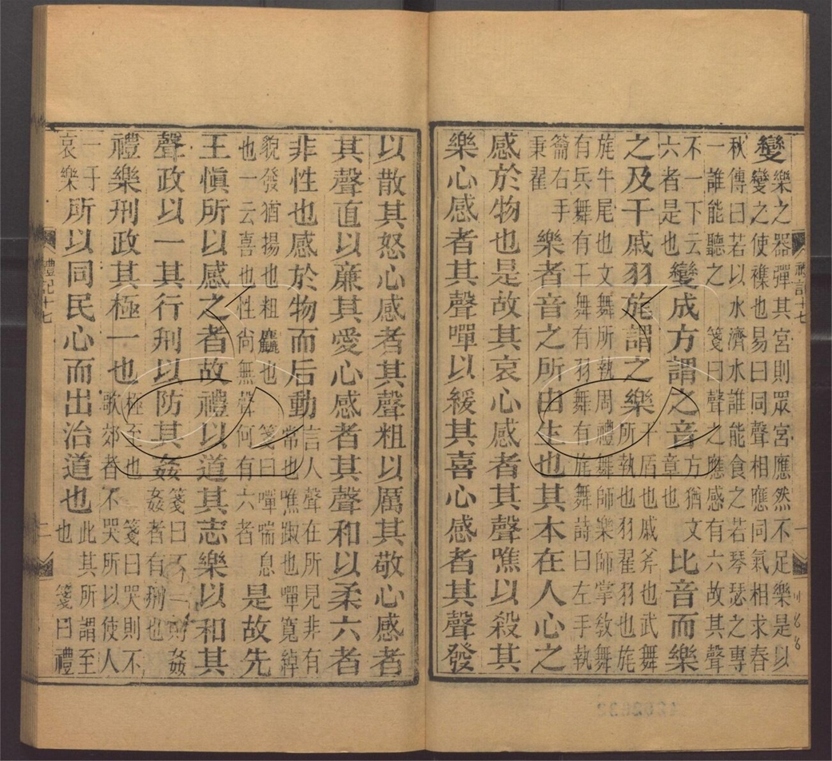 禮記十七
一
變樂之器彈其宮則眾宮應然不足樂是以
變之使襍也易曰同聲相應同氣相求春
秋傳曰若以水濟水誰能食之若琴瑟之專
一誰能聽之 箋曰聲之應感有六故其聲
不一下云
六者是也
變成方謂之音
方猶文
章也
比音而樂
之及干戚羽旄謂之樂
干盾也戚斧也武舞
所執也羽翟羽也旄
旄牛尾也文舞所執周禮舞師樂師掌敎舞
有兵舞有干舞有羽舞有旄舞詩曰左手執
籥右手
秉翟
樂者音之所由生也其本在人心之
感於物也是故其哀心感者其聲噍以殺其
樂心感者其聲嘽以緩其喜心感者其聲發
以散其怒心感者其聲粗以厲其敬心感者
其聲直以廉其愛心感者其聲和以柔六者
非性也感於物而后動
言人聲在所見非有
常也噍踧也嘽寬綽
貌發猶揚也粗麤也 箋曰嘽喘息
也一云喜也性尚無聲何有六者
是故先
王愼所以感之者故禮以道其志樂以和其
聲政以一其行刑以防其姦
箋曰不一則姦
姦者有刑也
禮樂刑政其極一也
極至也 箋曰哭則不
歌郊者不哭所以使人
一于
哀樂
所以同民心而出治道也
此其所謂至
也 箋曰禮
禮記十七
二